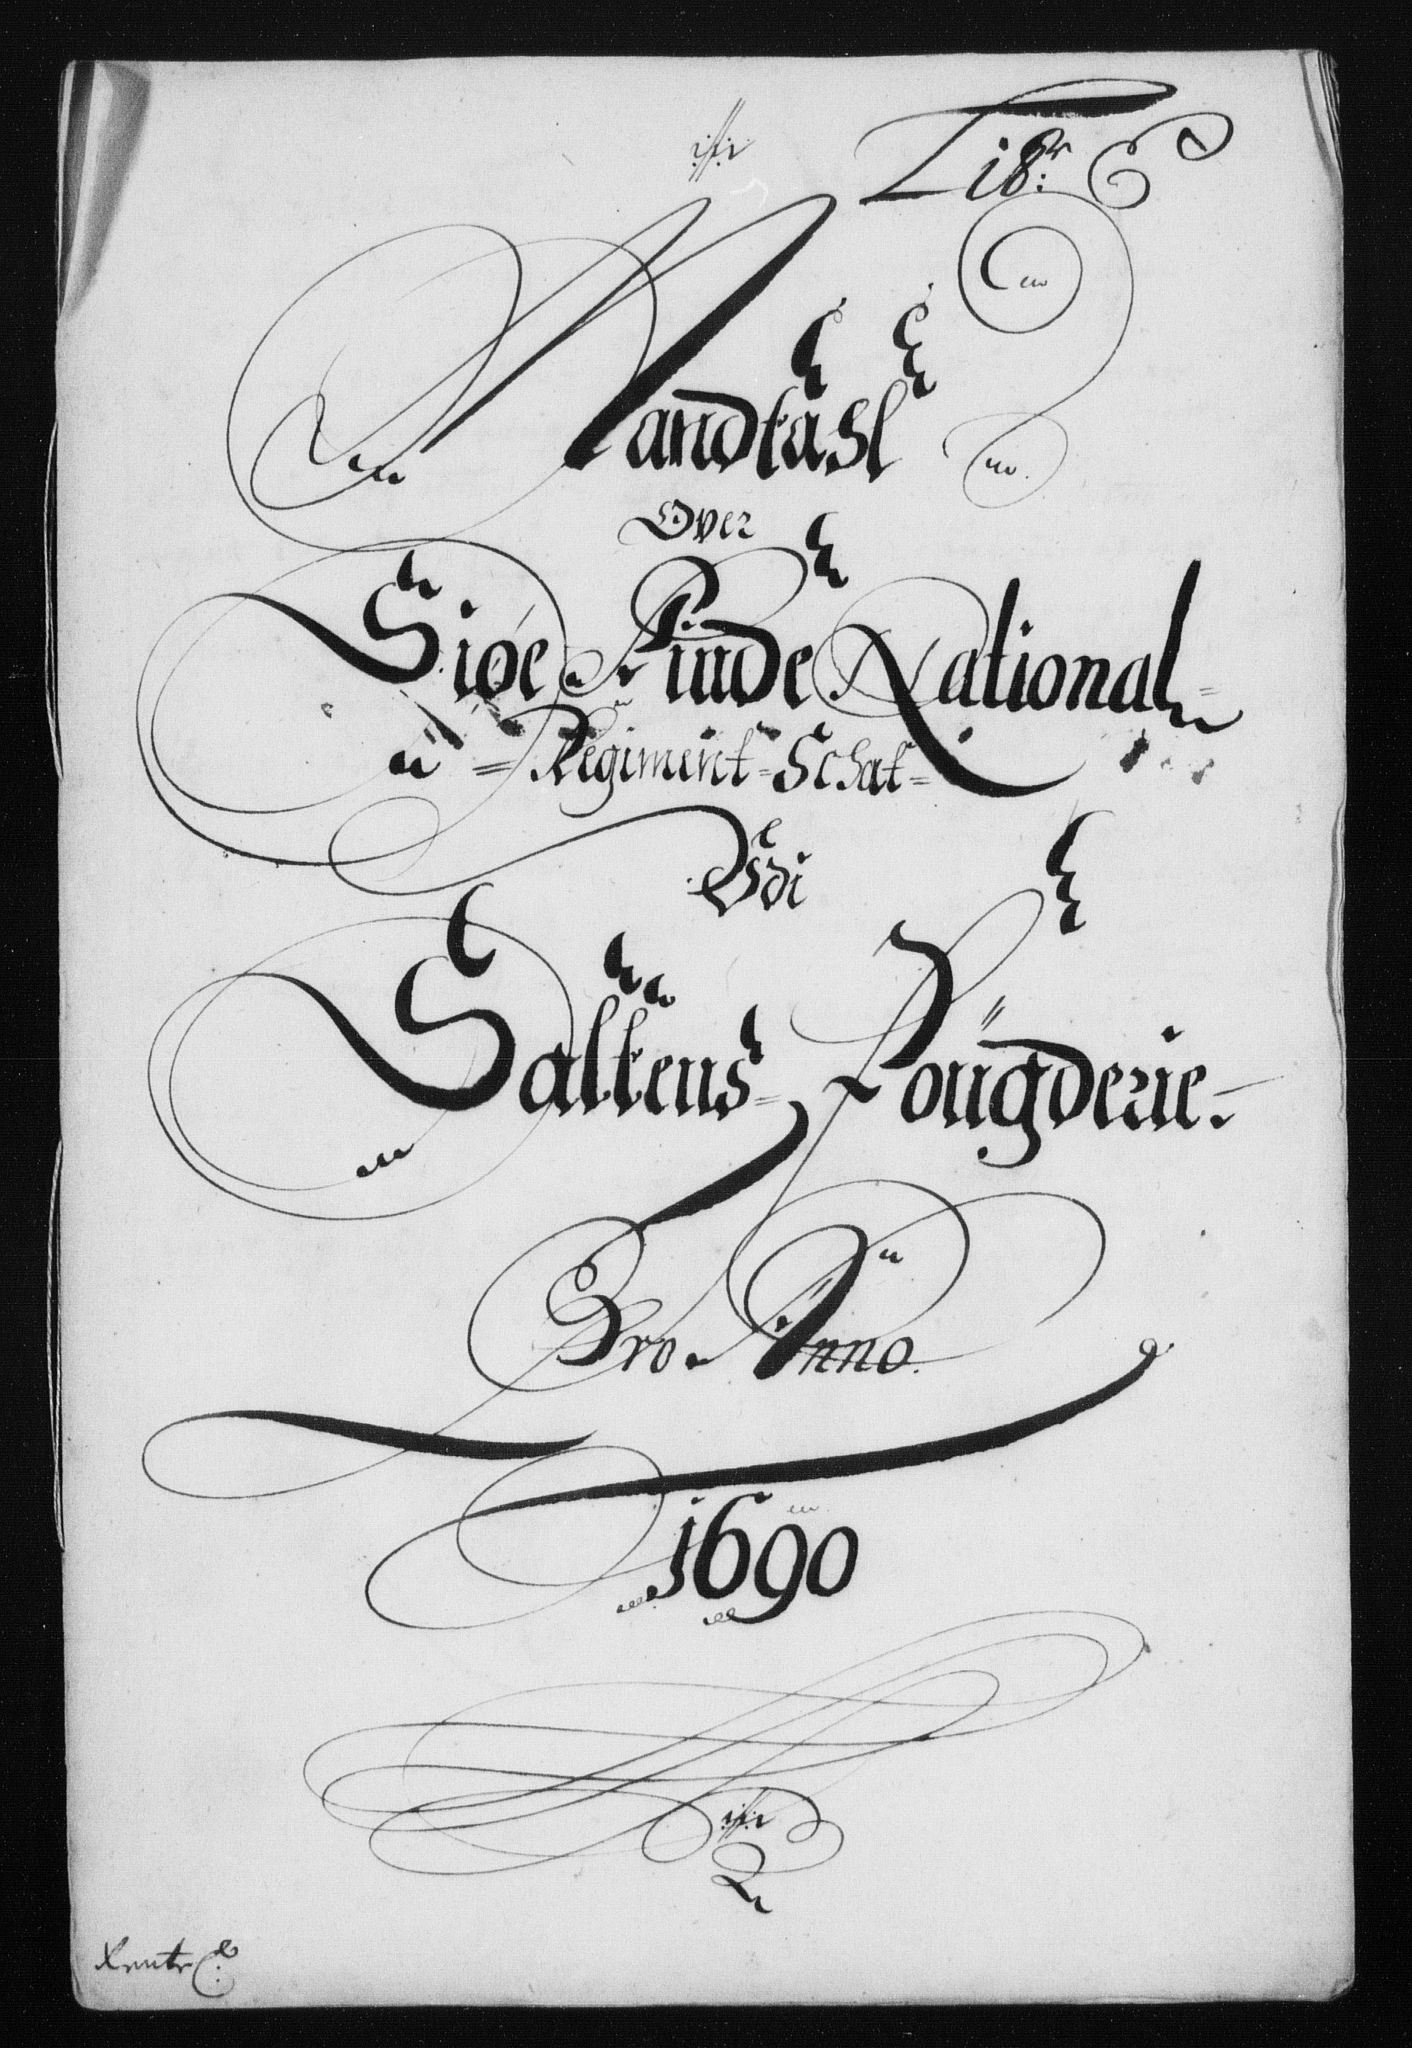 Lib:r C
Mandtahl
Over
Siøe Finde National
Regiment Schat
Vdi
Saltens Fougderie
Pro Anno
1690